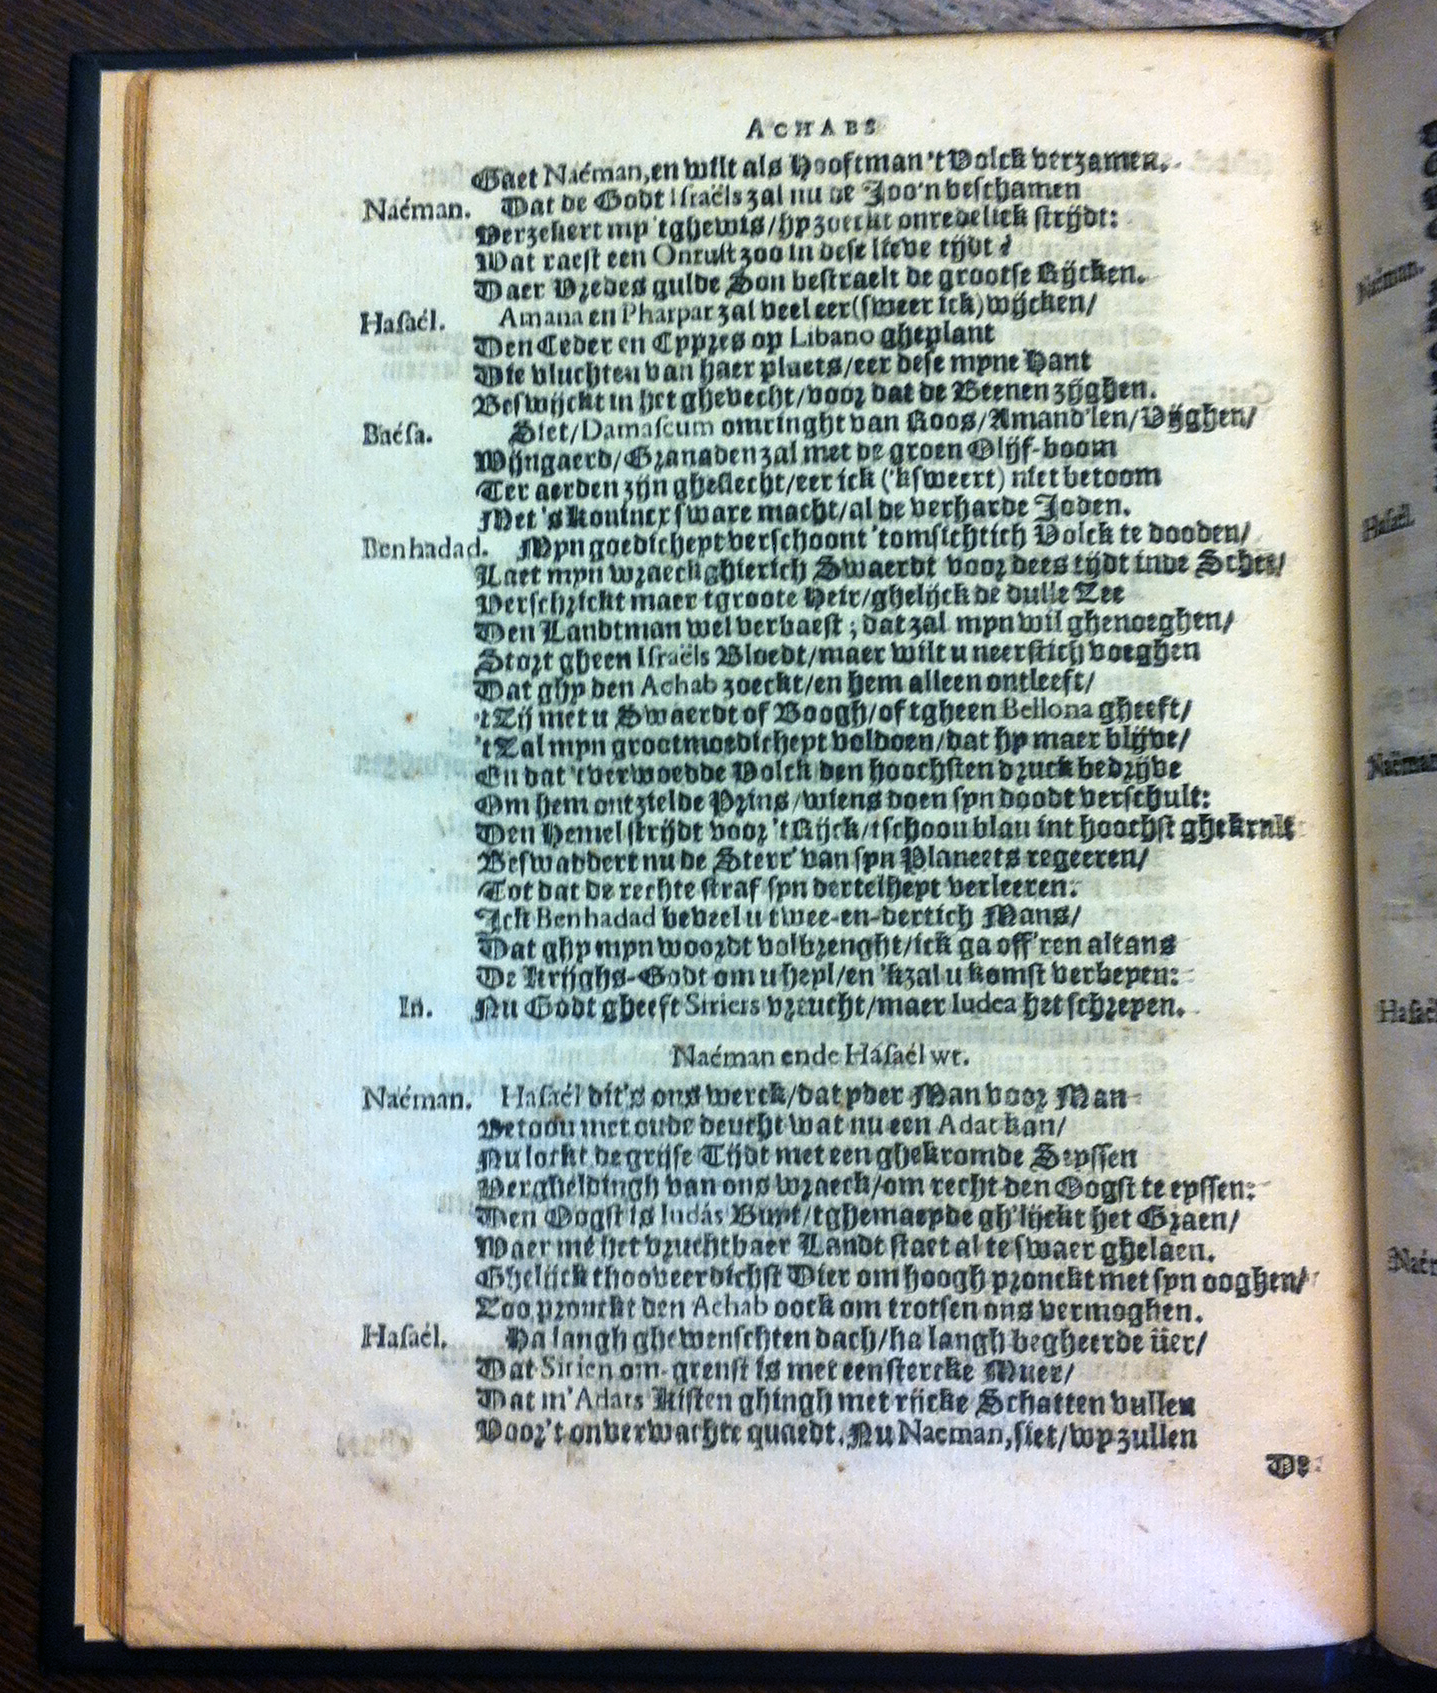 ACHABS
Gaet Naéman, en wilt als Hooftman 't Volck verzamen.
Naéman. Dat de Godt Israëls zal nu de Joo'n beschamen
Verzekert my 'tghewis/hy zoeckt onredelick strijdt:
Wat raest een Onruit zoo in dese lieve tijdt?
Daer Vredes gulde Son bestraelt de grootse Rijcken.
Hasaél. Amana en Pharpar zal veel eer (sweer ick) wijcken/
Den Ceder en Cypres op Libano gheplant
Die vluchten van haer plaets/eer dese myne Hant
Beswijckt in het ghevecht/voor dat de Beenen zijghen.
Baésa. Siet/Damascum omringht van Roos/Amand'len/Vijghen/
Wijngaerd/Granaden zal met de groen Olijf-boom
Ter aerden zijn gheslecht/eer ick ('ksweert) niet betoom
Met 's Konincx sware macht/al de verharde Joden.
Benhadad. Myn goedicheyt verschoont 'tomsichtich Volck te dooden/
Laet myn wraeckghierich Swaerdt voor dees tijdt inde Schee/
Verschrickt maer tgroote Heir/ghelijck de dulle Zee
Den Landtman wel verbaest; dat zal myn wil ghenoeghen/
Stort gheen Israëls Bloedt/maer wilt u neerstich voeghen
Dat ghy den Achab zoeckt/en hem alleen ontleeft/
't Zij met u Swaerdt of Boogh/of tgheen Bellona gheeft/
't Zal myn grootmoedicheyt voldoen/dat hy maer blijve/
En dat 't verwoedde Volck den hoochsten druck bedrijve
Om hem ontzielde Prins/wiens doen syn doodt verschult:
Den Hemel strijdt voor 't Rijck/tschoon blau int hoochst ghekrult
Beswaddert nu de Sterr' van syn Planeets regeeren/
Tot dat de rechte straf syn dertelheyt verleeren.
Ick Benhadad beveel u twee-en-dertich Mans/
Dat ghy myn woordt volbrenght/ick ga off'ren altans
De Krijghs-Godt om u heyl/en 'kzal u komst verbeyen:
In. Nu Godt gheeft Siriers vreucht/maer Iudea het schreyen.
Naéman ende Hasaél wt.
Naéman. Hasaél dit's ons werck/dat yder Man voor Man
Betoon met oude deucht wat nu een Adat kan/
Nu lockt de grijse Tijdt met een ghekromde Seyssen
Vergheldingh van ons wraeck/om recht den Oogst te eyssen:
Den Oogst is Iudás Buyt/tghemaeyde gh'lijckt het Graen/
Waer mé het vruchtbaer Landt staet al te swaer ghelaen.
Ghelijck thooveerdichst Dier om hoogh pronckt met syn ooghen/
Zoo pronckt den Achab oock om trotsen ons vermoghen.
Hasaél. Ha langh ghewenschten dach/ha langh begheerde üer/
Dat Sirien om-grenst is met een stercke Muer/
Dat m' Adats Kisten ghingh met rijcke Schatten vullen
Voor 't onverwachte quaedt. Nu Naeman, siet/wy zullen
De
Naéman.
Hasaél.
Naéman
Hasaél
Naém